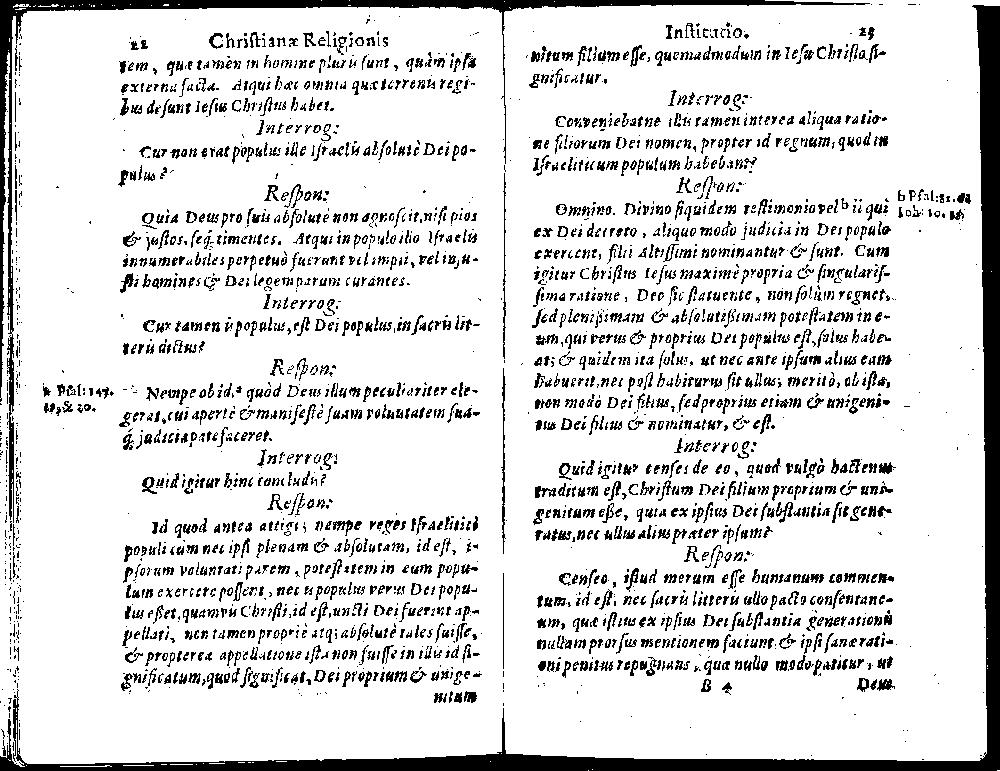 22 Christianæ Religionis
tem, quæ tamen in homine pluris sunt, quàm ipsa
externa facta. Atqui hæc omnia quæ terrenis regi-
bus desunt Iesus Christus habet.
Interrog:
Cur non erat populus ille Israelis absolutè Dei po-
pulus?
Respon:
Quia Deus pro suis absolutè non agnoscit, nisi pios
& justos, seq́; timentes. Atqui in populo illo Israelis
innumerabiles perpetuò fuerunt vel impii, vel inju-
sti homines & Dei legem parum curantes.
Interrog:
Cur tamen is populus, est Dei populus, in sacris lit-
teris dictus?
Respon:
a Psal: 147.
19, & 20.
Nempe ob id, a quòd Deus illum peculiariter ele-
gerat, cui apertè & manifestè suam voluntatem sua-
q́; judicia patefaceret.
Interrog:
Quid igitur hinc concludis?
Respon:
Id quod antea attigi; nempe reges Israelitici
populi cum nec ipsi plenam & absolutam, id est, i-
psorum voluntati parem, potestatem in eum popu-
lum exercere possent, nec is populus verus Dei popu-
lus esset, quamvis Christi, id est, uncti Dei fuerint ap-
pellati, non tamen propriè atq; absolutè tales fuisse,
& propterea appellatione ista non fuisse in illis id si-
gnificatum, quod significat, Dei proprium & unige-
nitum
Institutio. 23
nitum filium esse, quemadmodum in Iesu Christo si-
gnificatur.
Interrog:
Conveniebatne illis tamen interea aliqua ratio-
ne filiorum Dei nomen, propter id regnum, quod in
Israeliticum populum habebant?
Respon:
b Psal: 82. 6
Ioh: 10.
Omnino. Divino siquidem testimonio vel b ii qui
ex Dei decreto, aliquo modo judicia in Dei populo
exercent, filii Altissimi nominantur & sunt. Cum
igitur Christus Iesus maximè propria & singularis-
sima ratione, Deo sic statuente, non solùm regnet,
sed plenissimam & absolutissimam potestatem in e-
um, qui verus & proprius Dei populus est, solus habe-
at; & quidem ita solus, ut nec ante ipsum alius eam
habuerit, nec post habiturus sit ullus; meritò, ob ista,
non modò Dei filius, sed proprius etiam & unigeni-
tus Dei filius & nominatur, & est.
Interrog:
Quid igitur censes de eo, quod vulgò hactenus
traditum est, Christum Dei filium proprium & uni-
genitum esse, quia ex ipsius Dei substantia sit gene-
ratus, nec ullus alius præter ipsum?
Respon:
Censeo, istud merum esse humanum commen-
tum, id est, nec sacris litteris ullo pacto consentane-
um, quæ istius ex ipsius Dei substantia generationis
nullam prorsus mentionem faciunt; & ipsi sanæ rati-
oni penitus repugnans, quæ nullo modo patitur, ut
B 4 Deus